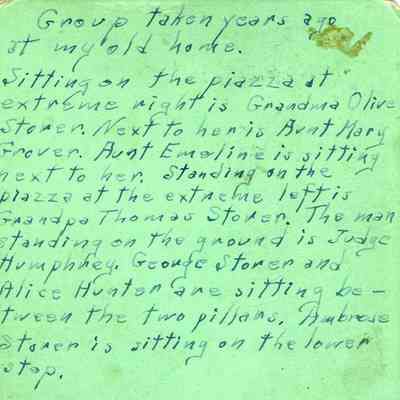 Group taken years ago
at my old home.
Sitting on the piazza at
extreme right is Grandma Olive
Storer. Next to her is Aunt Mary
Grover. Aunt Emeline is sitting
next to her. Standing on the
piazza at the extreme left is
Grandpa Thomas Storer. The man
standing on the ground is Judge
Humphrey. George Storer and
Alice Hunter are sitting be-
tween the two pillars. Ambrose
Storer is sitting on the lower
step.